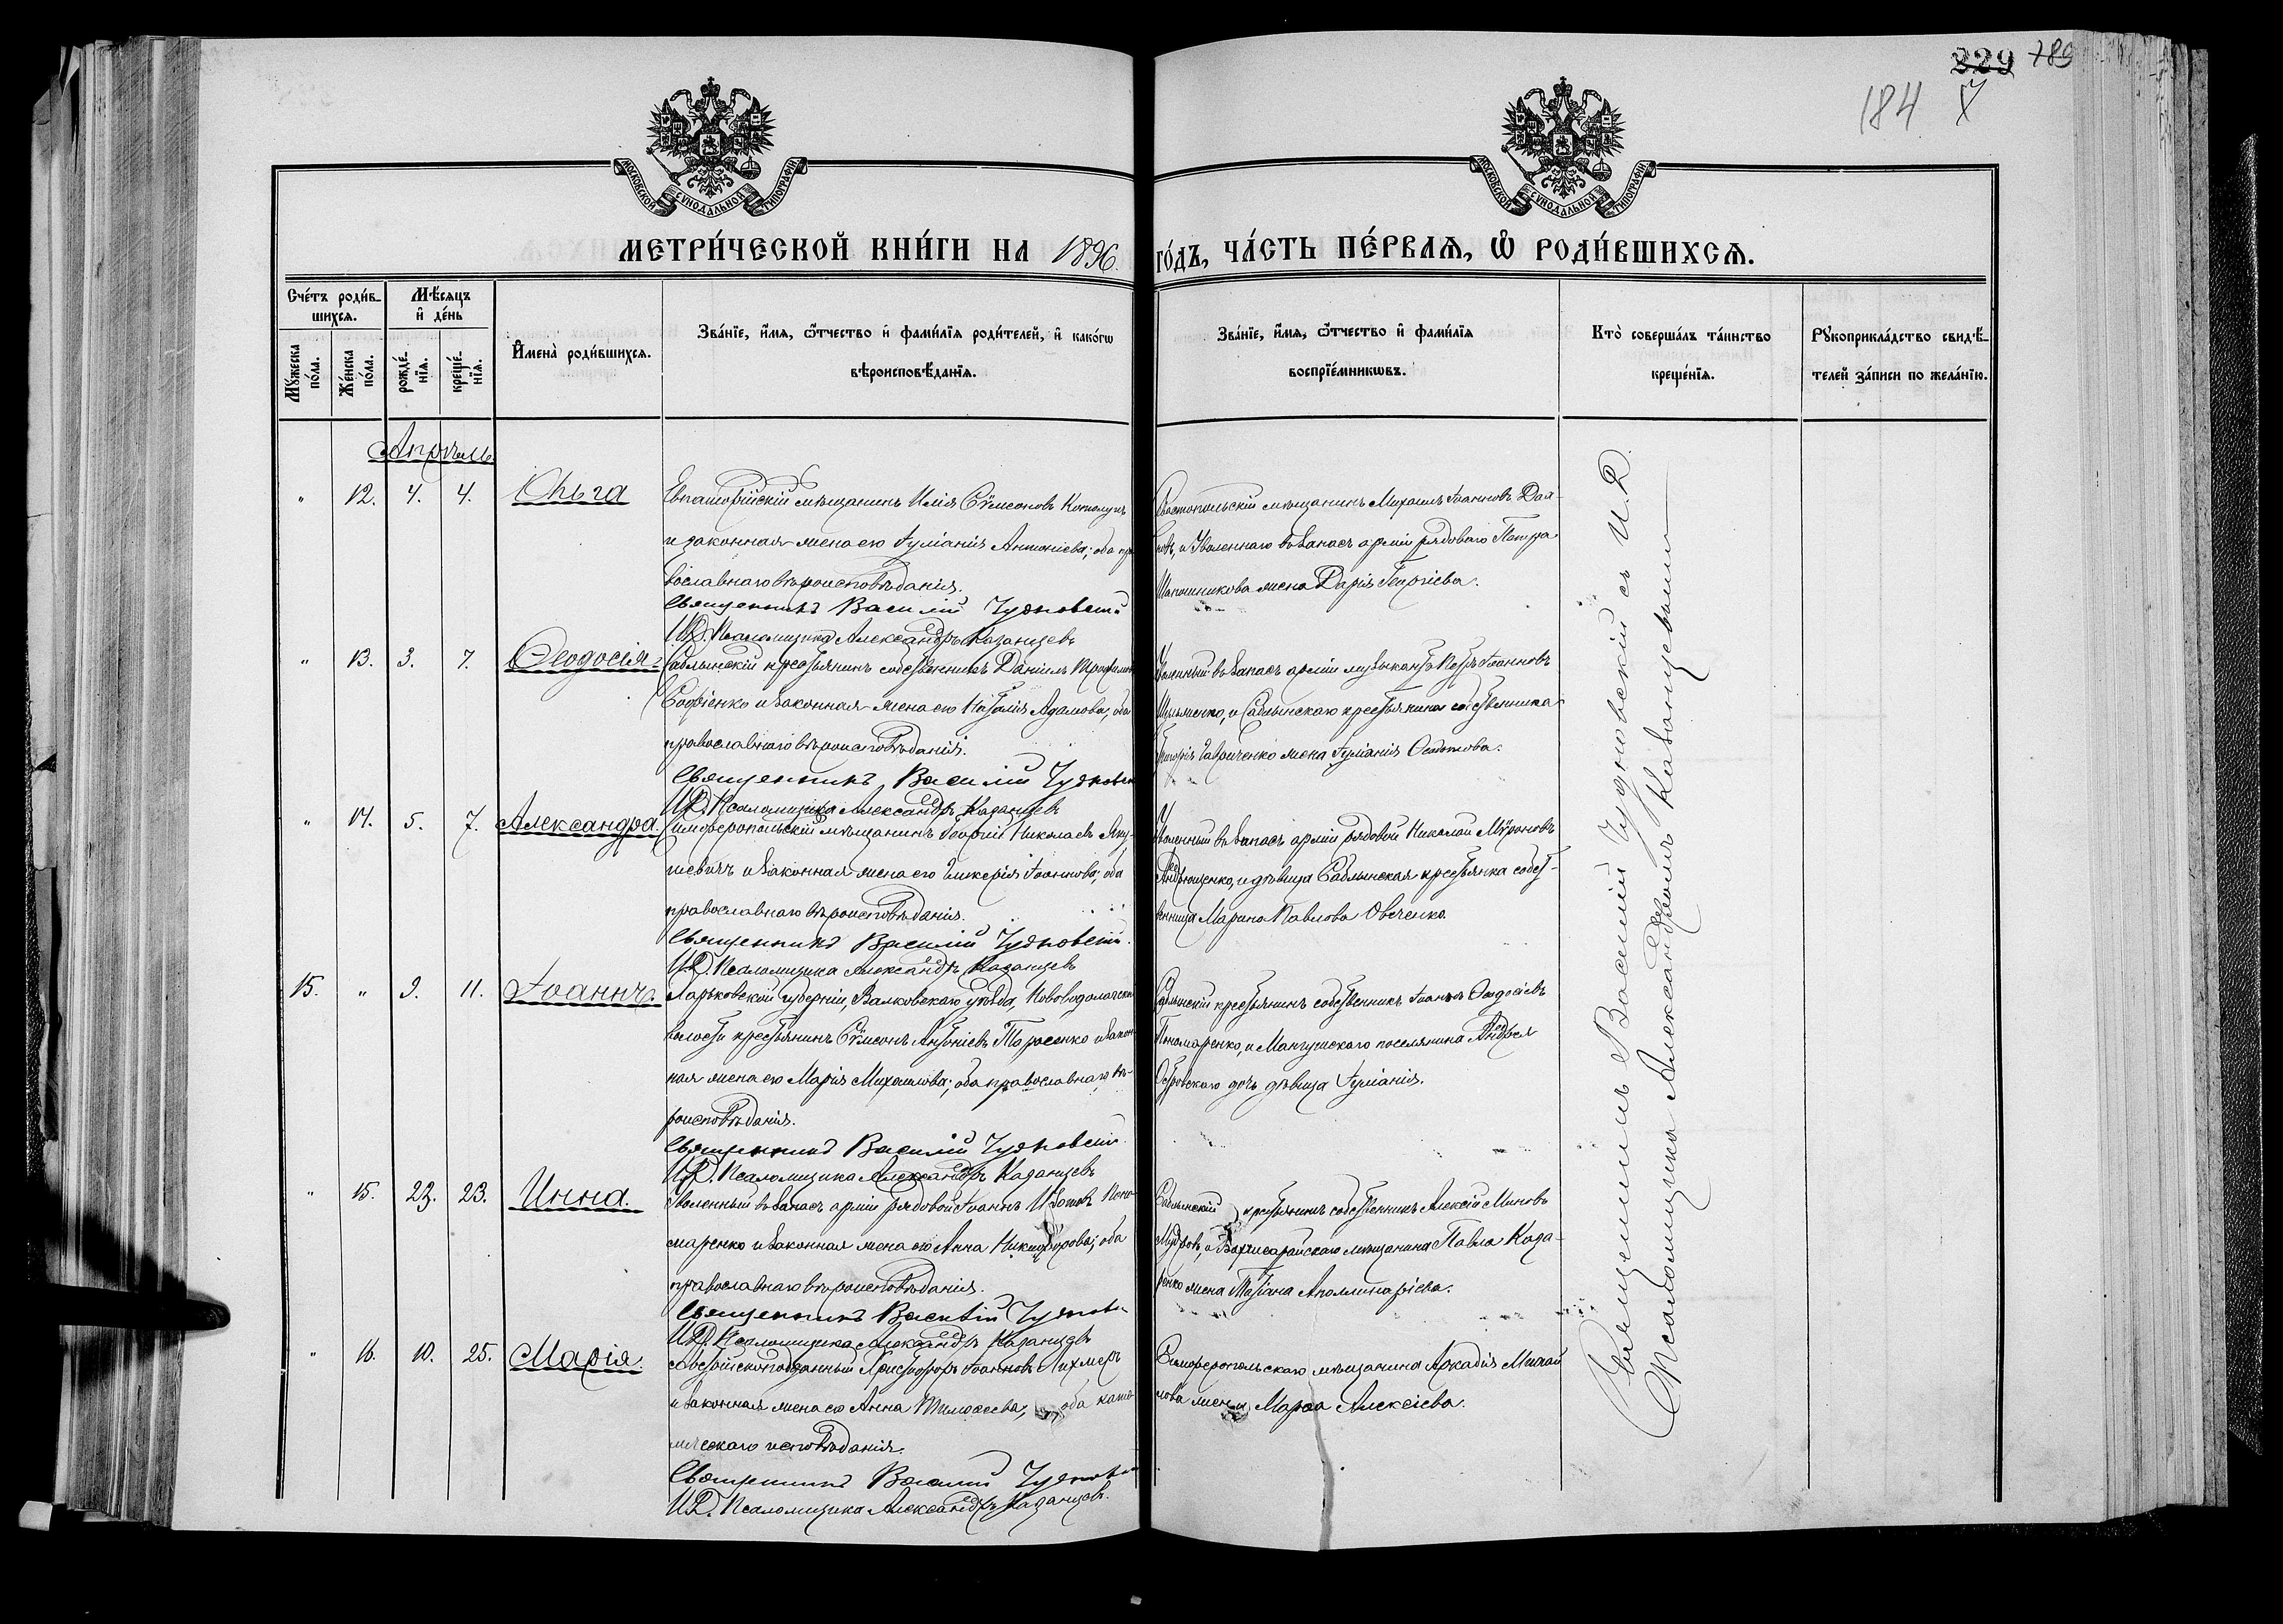 229 189
184
МОСКОВСКОЙ СѴНОДАЛЬНОЙ ТИПОГРАФІИ
МОСКОВСКОЙ СѴНОДАЛЬНОЙ ТИПОГРАФІИ
МЕТРИ́ЧЕСКОЙ КНИ́ГИ НА 1896 ГО́ДЪ, ЧА́СТЬ ПЕ́РВАѦ, Ѽ РОДИ́ВШИХСѦ.
Сче́тъ роди́в-
шихсѧ.
Мꙋ́жеска
по́ла.
Же́нска
по́ла.
Мѣ́сѧцъ
и҆ де́нь
рожде́-
нїѧ.
креще́-
нїѧ.
И҆мена̀ роди́вшихсѧ.
Зва́нїе, и҆́мѧ, ѻ҆́тчество и҆ фами́лїѧ роди́телей, и҆ како́гѡ
вѣроисповѣ́данїѧ.
Зва́нїе, и҆́мѧ, ѻ҆́тчество и҆ фами́лїѧ
воспрїе́мникѡвъ.
Кто̀ соверша́лъ та́инство
креще́нїѧ.
Рꙋкоприкла́дство свидѣ́-
телей за́писи по жела́нїю.
Апрѣль
" 12. 4. 4. Ольга
Евпаторійскій мѣщанинъ Илія Сѵмеоновъ
и законная жена его Іуліанія Антоніева; оба пра
вославнаго вѣроисповѣданія.
Священникъ Василій Чудновскій
И.Д. Псаломщика Александръ Казанцевъ
Севастопольскій мѣщанинъ Михаилъ Іоанновъ
и Уволеннаго въ запасъ арміи рядоваго Петра
Шапошникова жена Дарія Георгіева.
" 13. 3. 7. Ѳеодосія
Саблынскій крестьянинъ собственникъ Даніилъ Трофимовъ
Софіенко и законная жена его Наталія Адамова, оба
православнаго вѣроисповѣданія.
Священникъ Василій Чудновскій
И.Д. Псаломщика Александръ Казанцевъ
Уволенный въ запасъ арміи музыкантъ Петръ Іоанновъ
и Саблынскаго крестьянина собственника
Григорія Гавриченко жена Іуліанія
" 14. 5. 7. Александра.
Симферопольскій мѣщанинъ Георгій Николаевъ Яну-
шевичъ и законная жена его Гликерія Іоаннова; оба
православнаго вѣроисповѣданія.
Священникъ Василій Чудновскій.
И.Д. Псаломщика Александръ Казанцевъ
Уволенный въ запасъ арміи рядовой Николай Мѵроновъ
Андрющенко, и дѣвица Саблынская крестьянка собст-
венница Марина Павлова Овсченко.
15. " 9. 11. Іоаннъ.
Харьковской губерніи, Валковскаго уѣзда, Нововодолажской
волости крестьянинъ Сѵмеонъ Антоніевъ Тарасенко и закон
ная жена его Марія Михаилова; оба православнаго вѣ-
роисповѣданія.
Священникъ Василій Чудновскій.
И.Д. Псаломщика Александръ Казанцевъ
Саблынскій крестьянинъ собственникъ Іоаннъ Ѳеодосіевъ
Пономаренко, и Мангушскаго поселянина Андрея
Островскаго дочь дѣвица Іуліанія.
" 15. 22. 23. Инна.
Уволенный въ запасъ арміи рядовой Іоаннъ Поно
маренко и законная жена его Анна Никифорова; оба
православнаго вѣроисповѣданія.
Священникъ Василій Чудновскій
И.Д. Псаломщика Александръ Казанцевъ
Саблынскій крестьянинъ собственникъ Алексій Миновъ
Мудровъ, и Бахчисарайскаго мѣщанина Павла Каза-
ренко жена Татіана Аполлинаріева.
" 16. 10. 25. Марія.
Австрійскоподданный Христофоръ Іоанновъ Лихмеръ
и законная жена его Анна Тимоѳеева, оба като
лическаго исповѣданія.
Священникъ Василій Чудновскій
И.Д. Псаломщика Александръ Казанцевъ.
Симферопольскаго мѣщанина Аркадія Михаи
лова жена Марѳа Алексіева.
Священникъ Василій Чудновскій съ И.Д.
Псаломщика Александромъ Казанцевымъ